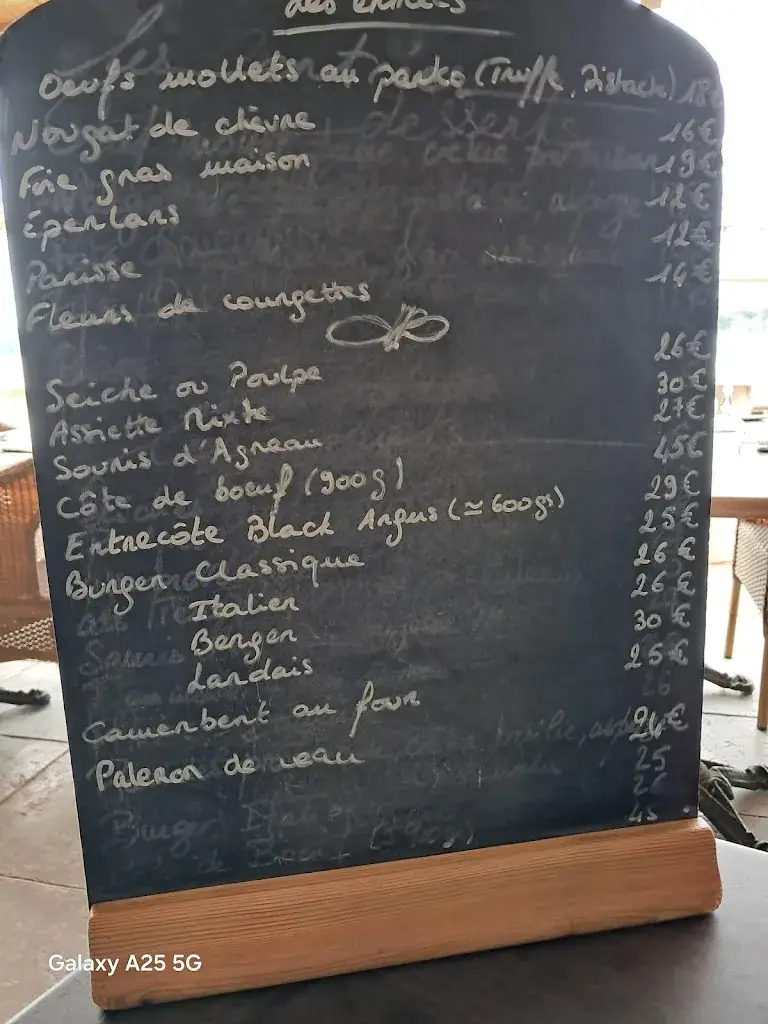 des entrées
Oeufs mollets au perko (Truffe, Pistach) 18€
Nougat de chèvre 16€
Foie gras maison 19€
Éperlans 12€
Panisse 12€
Fleurs de courgettes 14€
Seiche ou Poulpe 26€
Assiette Mixte 30€
Souris d'Agneau 27€
Côte de boeuf (900g) 45€
Entrecôte Black Angus (≃600gs) 29€
Burger Classique 25€
Italien 26€
Berger 26€
Landais 30€
Camembert au four 25€
Paleron de veau
25
Burger
45
Galaxy A25 5G